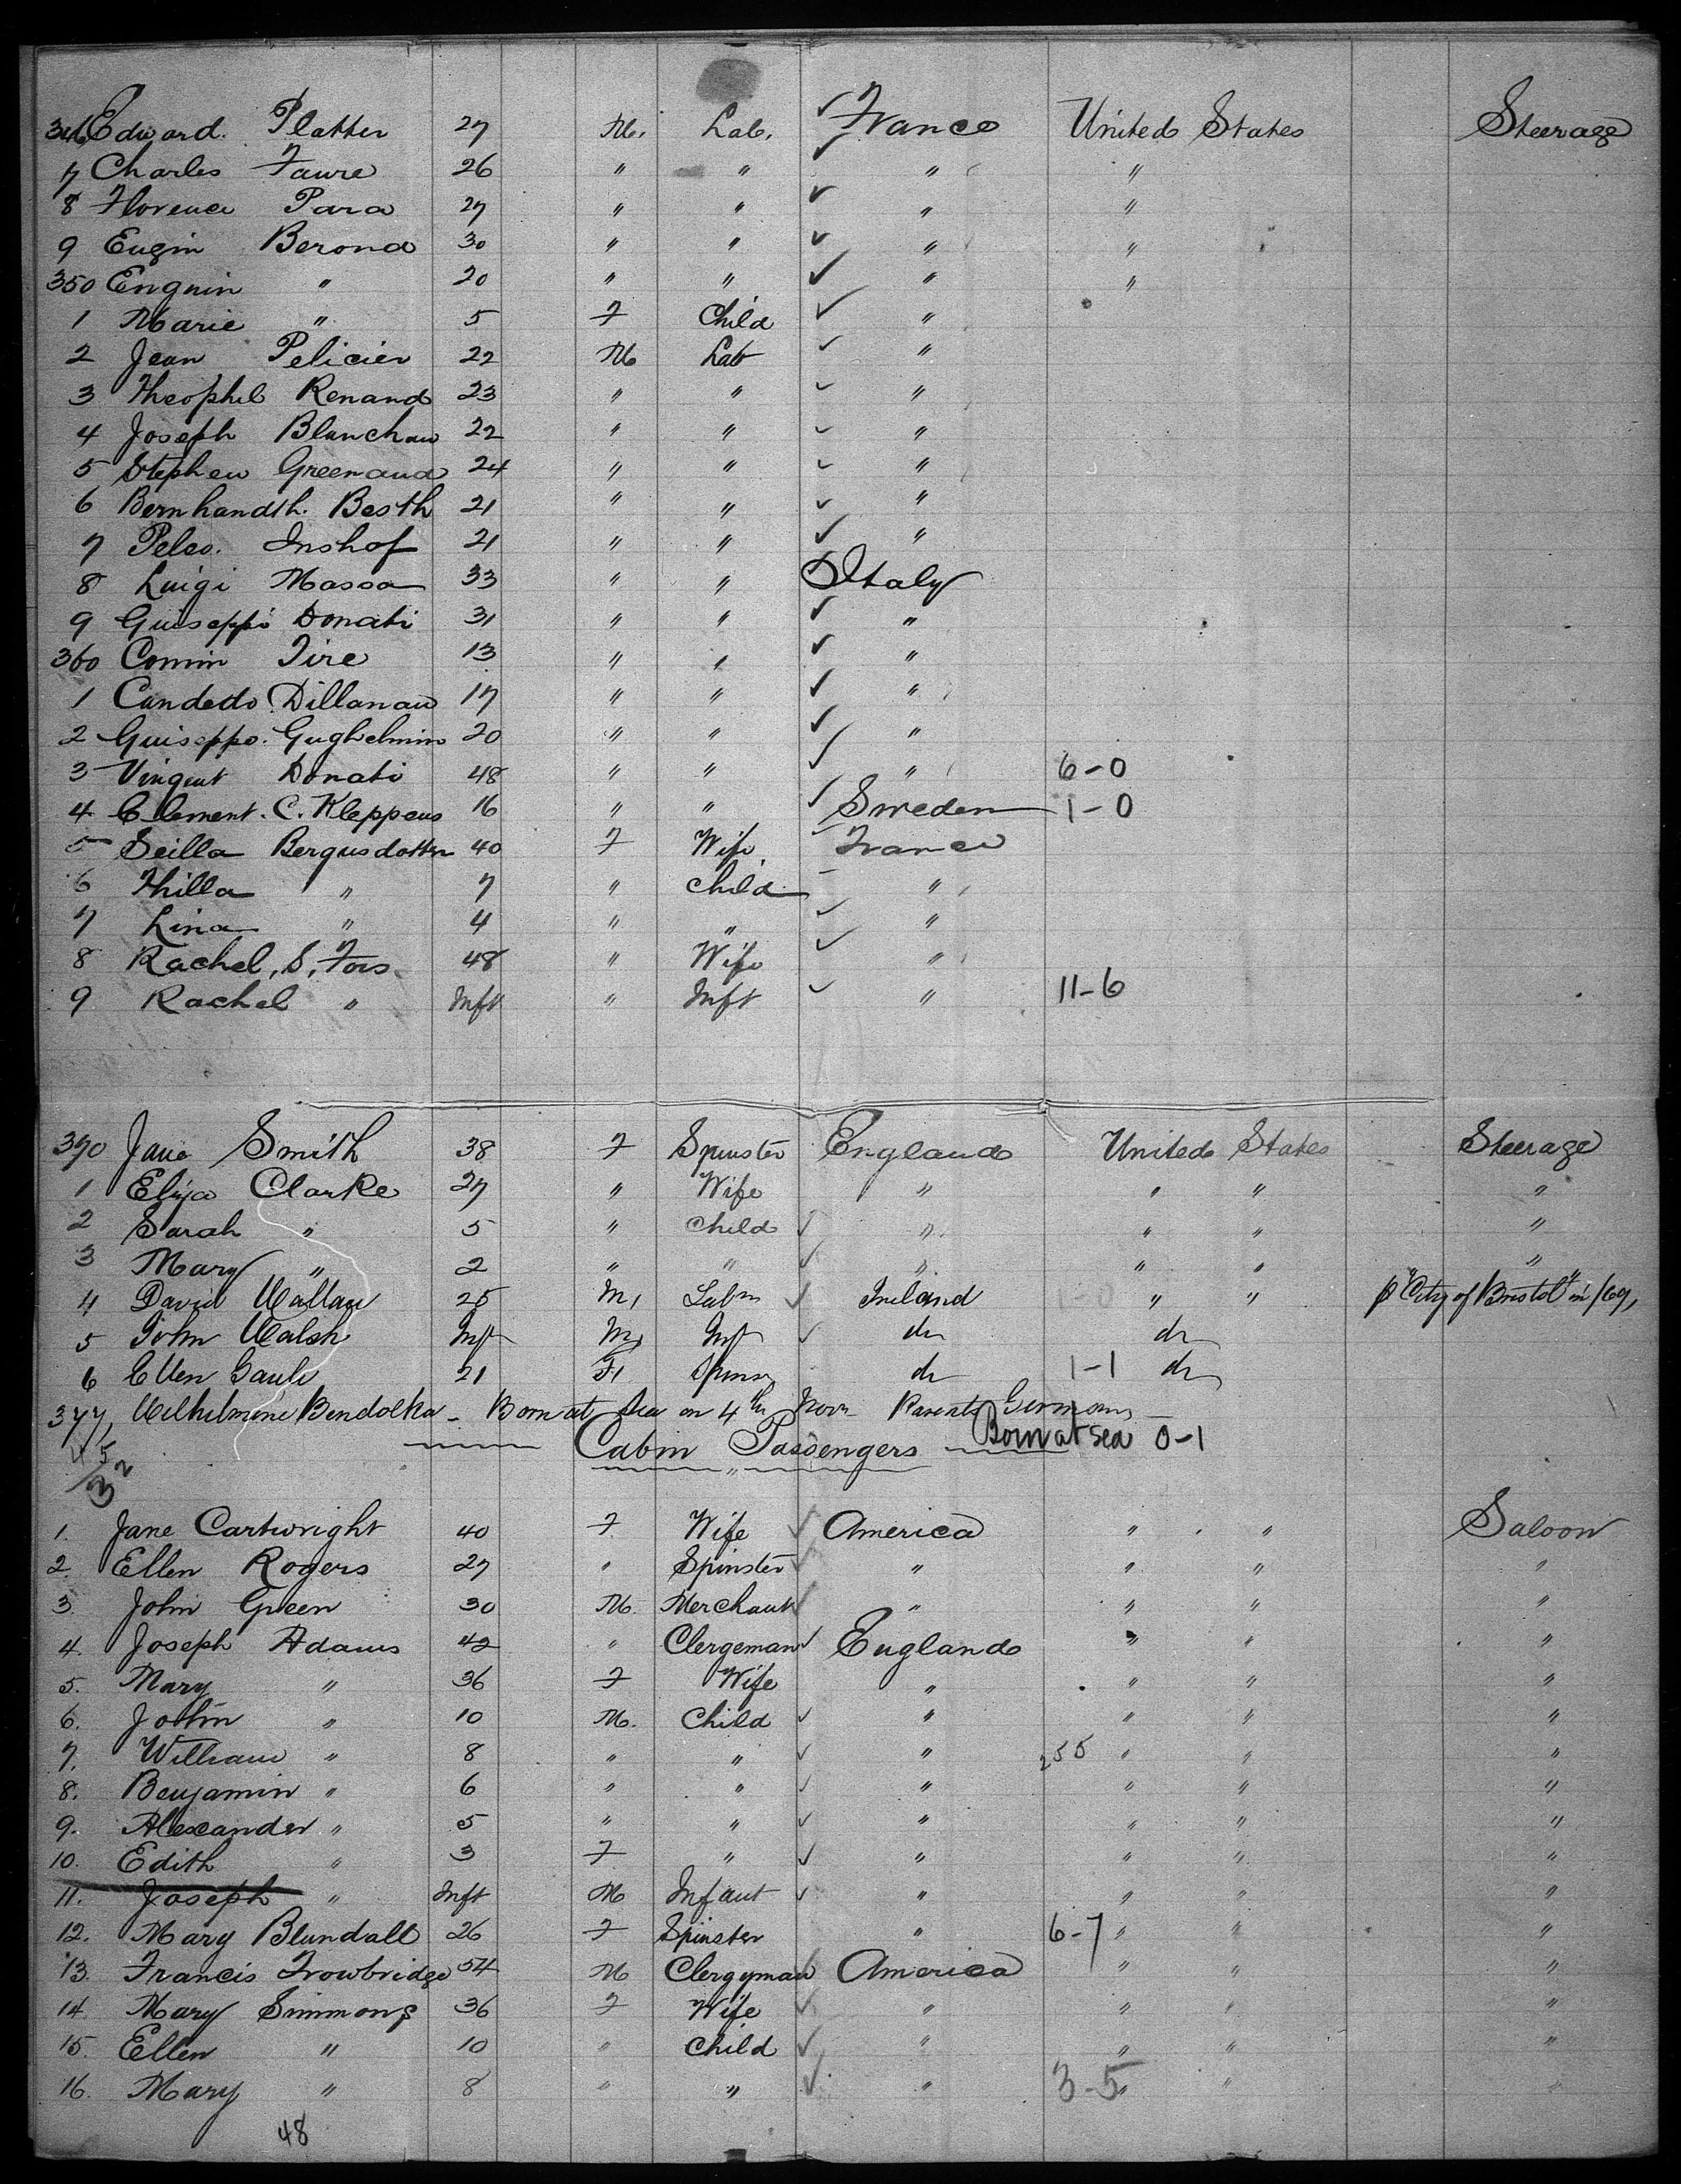 346 Edward. Platter 27 M. Lab. ✓ France United States Steerage
7 Charles Faure 26 " " ✓ " "
8 Florence Para 27 " " ✓ " "
9 Eugin Berond 30 " " ✓ " "
350 Enguin " 20 " " ✓ " "
1 Marie " 5 F Child ✓ "
2 Jean Pelicier 22 M Lab ✓ "
3 Theophil Renand 23 " " ✓ "
4 Joseph Blanchau 22 " " ✓ "
5 Stephen Greenaud 24 " " ✓ "
6 Bernhandth. Besth 21 " " ✓ "
7 Peleo. Inshof 21 " " ✓ "
8 Luigi Massa 33 " " Italy
9 Guiseppi Donati 31 " " ✓ "
360 Comin Tire 13 " " ✓ "
1 Candedo Dillanau 17 " " ✓ "
2 Guiseppo. Guglielmin 20 " " ✓ "
3 Vingent Donati 48 " " ✓ " 6-0
4 Clement. C. Kleppeus 16 " " ✓ Sweden 1-0
5 Seilla Bergusdotter 40 F Wife France
6 Thilla " 7 " Child "
7 Lina " 4 " " ✓ "
8 Rachel, S, Fors. 48 " Wife ✓ "
9 Rachel " Inft " Inft ✓ " 11-6
370 Jane Smith 38 F Spinster England United States Steerage
1 Eliza Clarke 27 " Wife " " " "
2 Sarah " 5 " Child ✓ " " " "
3 Mary " 2 " " ✓ " " " "
4 David Wallace 25 M, Labr ✓ Ireland 1-0 " " p "City of Bristol" in /69,
5 John Walsh Inft M, Inft ✓ do do
6 Ellen Gaule 21 F, Spinsr do 1-1 do
377, Wilhelmine Bendolka - Born at Sea on 4th Novr Parents Germans
Cabin Passengers Born at Sea 0-1
45
32
1. Jane Cartwright 40 F Wife ✓ America " " Saloon
2. Ellen Rogers 27 " Spinster ✓ " " " "
3. John Green 30 M. Merchant ✓ " " " "
4. Joseph Adams 42 " Clergeman ✓ England " " "
5. Mary " 36 F Wife " " " "
6. John " 10 M. Child ✓ " " " "
7. William " 8 " " ✓ " 255 " " "
8. Benjamin " 6 " " ✓ " " " "
9. Alexander " 5 " " ✓ " " " "
10. Edith " 3 F " ✓ " " " "
11. Joseph " Inft M Infant ✓ " " " "
12. Mary Blundall 26 F Spinster " 6-7 " " "
13. Francis Trowbridge 54 M Clergyman ✓ America " " "
14. Mary Simmons 36 F Wife ✓ " " " "
15. Ellen " 10 " Child ✓ " " " "
16. Mary " 8 " " ✓ " 3-5 " " "
48